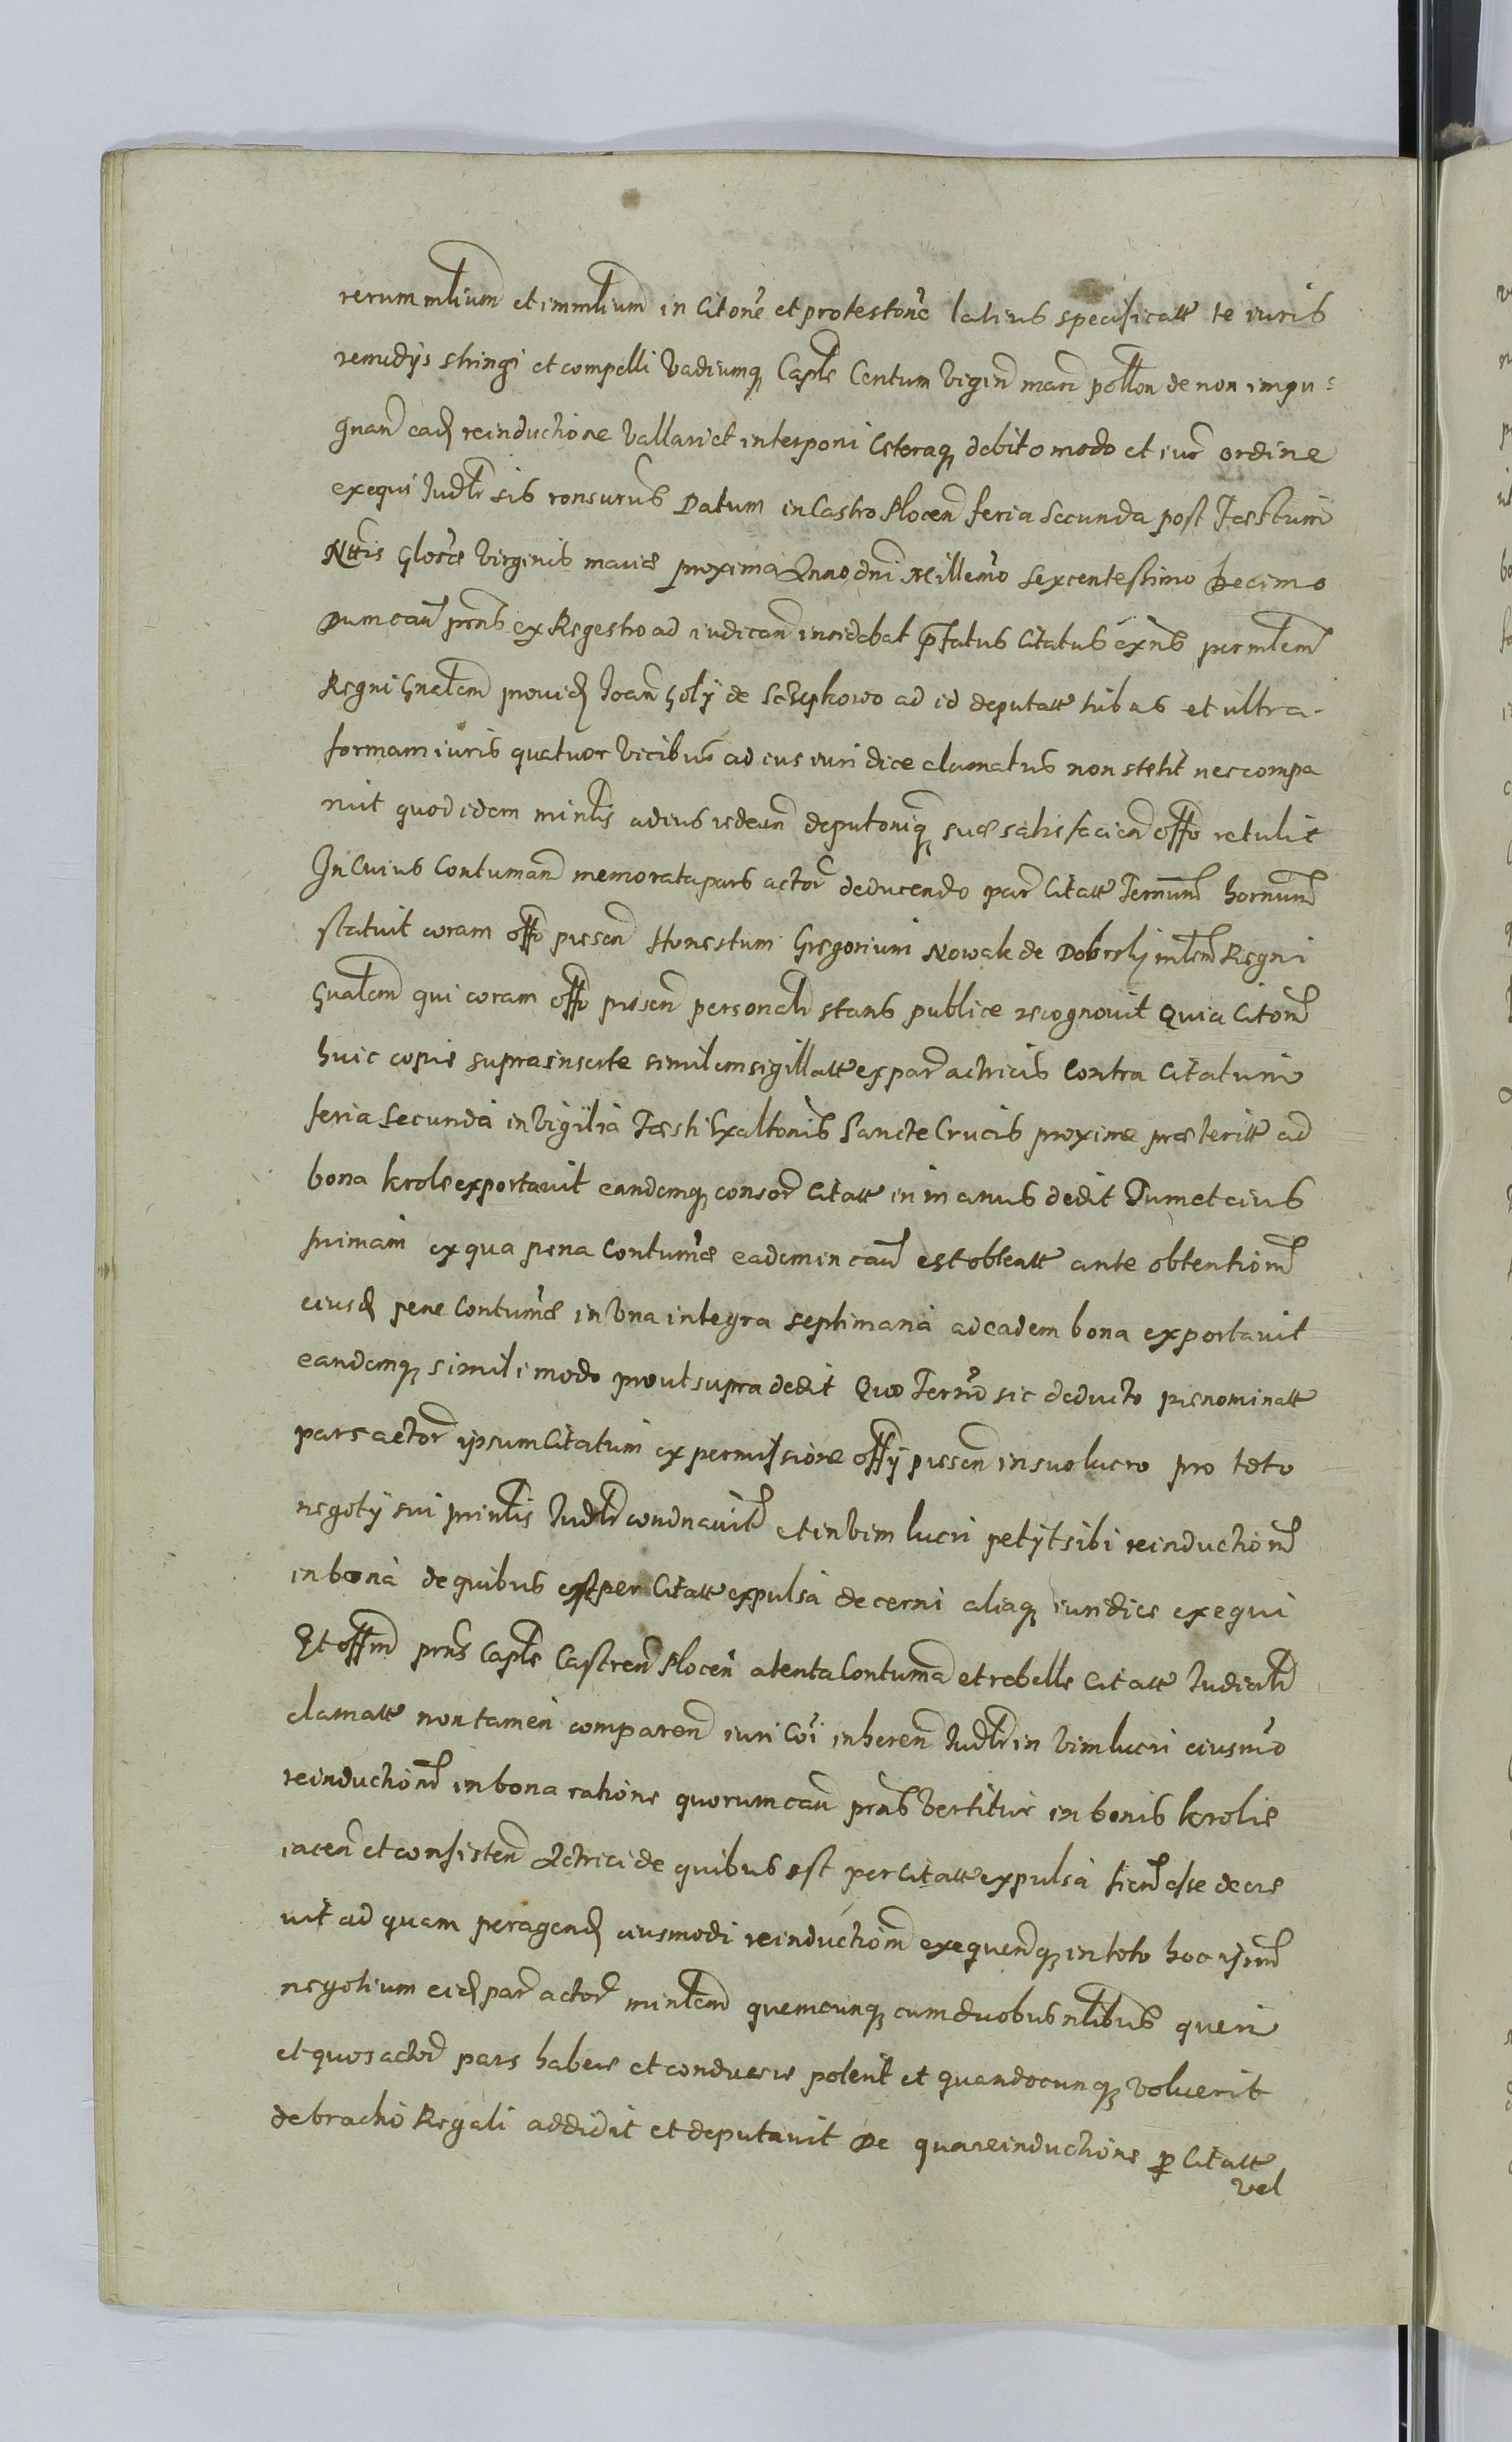 rerum mlium et immlium in Citone et protestone latius specificatt te iuris
remedys stringi et compelli Vadiumq Caple Centum Vigin marc pollon de non impu=
gnan ead reinductione Vallari et interponi Ceteraq debito modo et iur ordine
exequi Judlr sis consurus Datum in Castro Plocen feria Secunda post Festum
Nttis Gloræ Virginis mariæ proxima Anno dni Millemo Sexcentessimo Decimo
Dum cau prns ex Regestro ad iudican incidebat pfatus Citatus exns per mlem
Regni Gnalem provid Joan Goly de ad id deputatt tubas et ultra
formam iuris quatuor Vicibus ad ius iuridice clamatus non stetit nec compa
ruit quod idem minlis ad ius redeun deputoniq suæ satisfacien offo retulit
In Cuius Contuman memorata pars actor deducendo par Citatt Termnum hornum
statuit coram offo presen Honestum Gregorium Nowak de mlem Regni
Gnalem qui coram offo presen personalr stans publice recognovit Quia Citone
huic copie supra inserte similem sigillatt ex par actricis Contra Citatum
feria Secunda in Vigilia Festi Exaltonis Sancte Crucis proxime præteritt ad
bona krole exportavit eandemq consor Citatt in manus dedit Tum et eius
ex qua pena Contumæ eadem in cau est obtentt ante obtentionem
eiusd pene Contumæ in Una integra septimana ad eadem bona exportavit
eandemq simili modo prout supra dedit Quo Termo sic deducto prenominatt
pars actor ipsum Citatum ex permissione offy presen in suo lucro pro toto
negoty sui prinlis Judlr condnavit et in Vim lucri petyt sibi reinductionem
in bona de quibus est per Citatt expulsa decerni aliaq iuridice exequi
Et offm prns Caple Castren Plocen atenta Contuma et rebelle Citatt Judicialr
clamatt non tamen comparen iuri Coi inheren Judlr in Vim lucri eiusmo
reinductionem in bona ratione quorum cau prns Vertitur in bonis krolie
iacen et consisten Actrici de quibus est per Citatt expulsa fiend esse decre
vit ad quam peragend eiusmodi reinductionem exequenq in toto hoc ipsum
negotium eid par actor minlem quemcunq cum duobus nlibus quem
et quos actor pars habere et conducere poterit et quandocunq Voluerit
de brachio Regali addidit et deputavit De qua reinductione p Citatt
vel